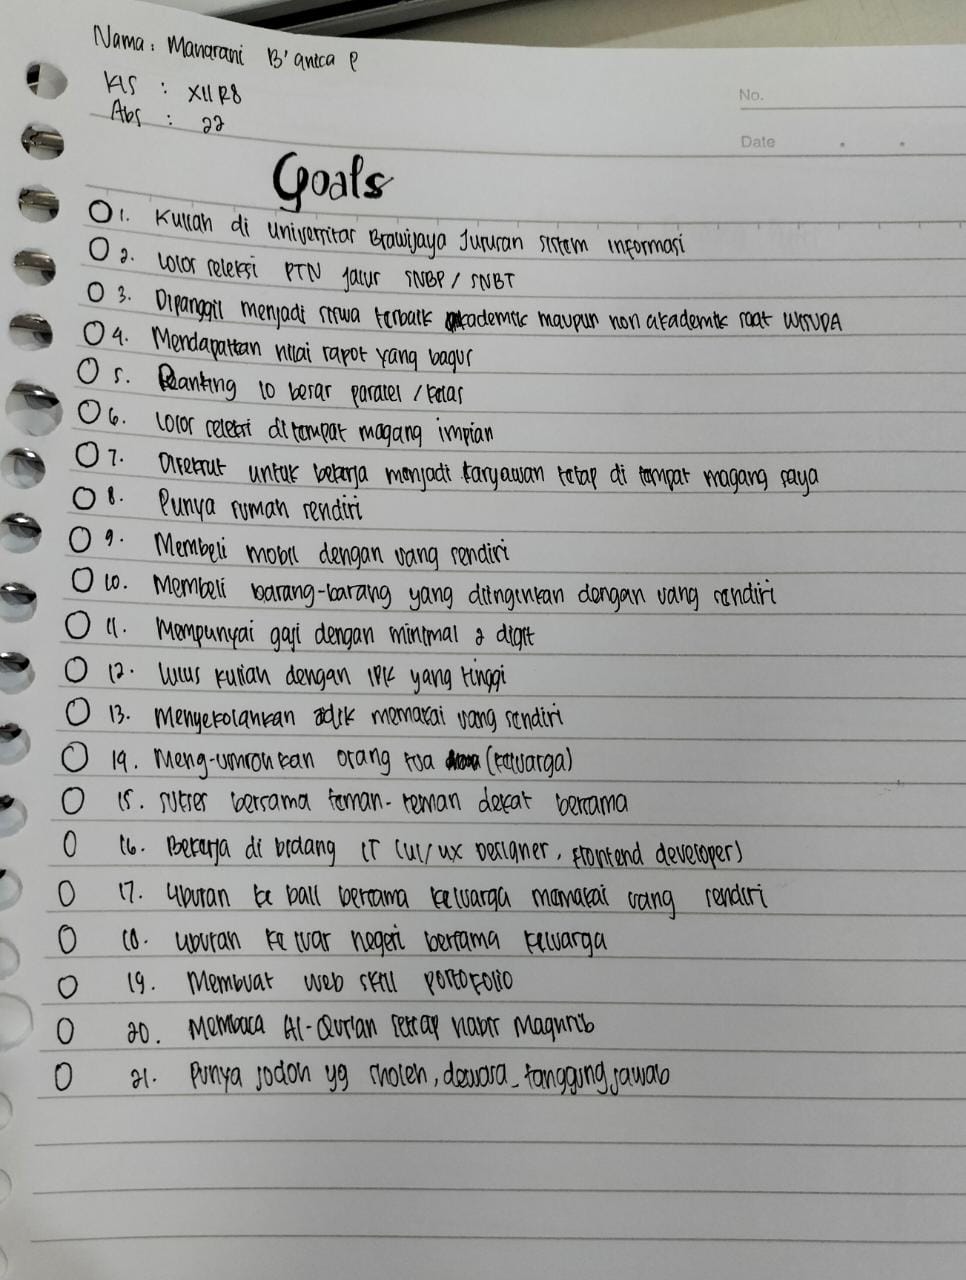 Nama : Maharani B'antca P
KLS : XII R8
Abs : 22
No.
Date
Goals
1. Kuliah di Universitas Brawijaya Jurusan Sistem Informasi
2. Lolos seleksi PTN jalur SNBP / SNBT
3. Dipanggil menjadi siswa terbaik akademik maupun non akademik saat WISUDA
4. Mendapatkan nilai rapot yang bagus
5. Ranking 10 besar paralel / kelas
6. Lolos seleksi di tempat magang impian
7. Direkrut untuk bekerja menjadi karyawan tetap di tempat magang saya
8. Punya rumah sendiri
9. Membeli mobil dengan uang sendiri
10. Membeli barang-barang yang diinginkan dengan uang sendiri
11. Mempunyai gaji dengan minimal 2 digit
12. Lulus kuliah dengan IPK yang tinggi
13. Menyekolahkan adik memakai uang sendiri
14. Meng-umrohkan orang tua (keluarga)
15. Sukses bersama teman-teman dekat bersama
16. Bekerja di bidang IT (UI/UX Designer, Frontend developer)
17. Liburan ke bali bersama keluarga memakai uang sendiri
18. Liburan ke luar negeri bersama keluarga
19. Membuat web skill portofolio
20. Membaca Al-Qur'an setiap habis Maghrib
21. Punya jodoh yg sholeh, dewasa, tanggung jawab